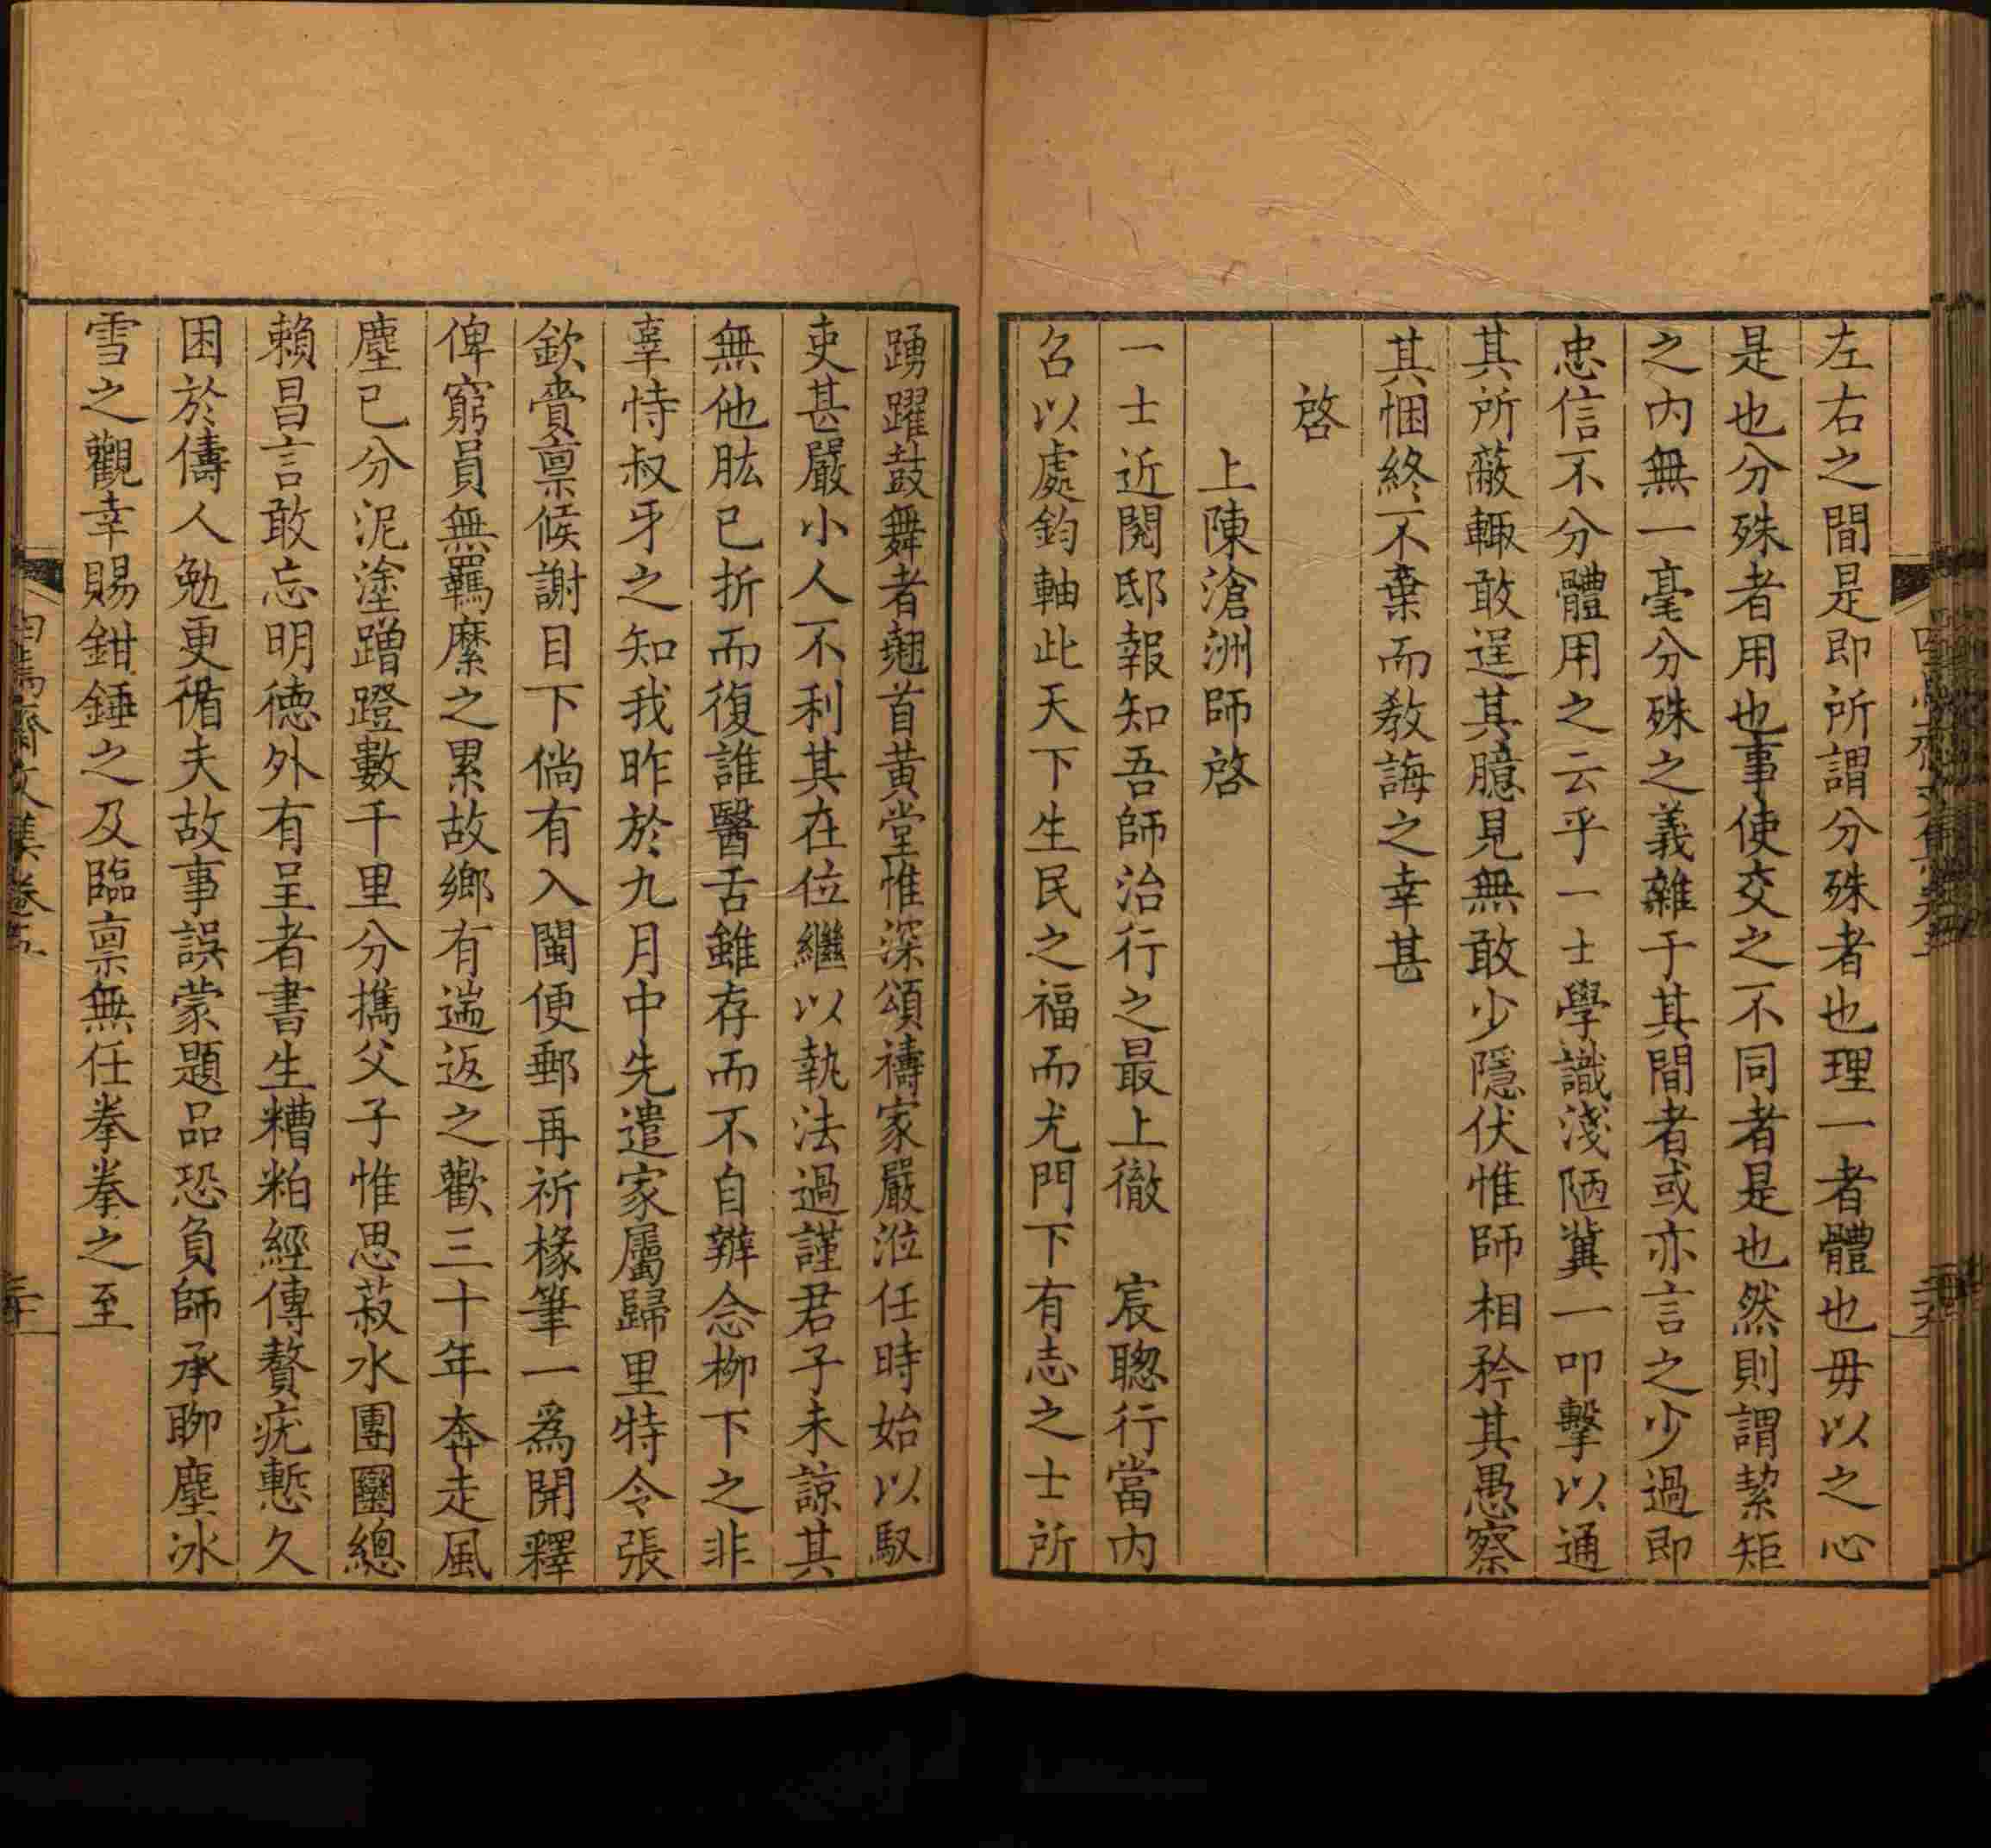 左右之間是即所謂分殊者也理一者體也毋以之心
是也分殊者用也事使交之不同者是也然則謂絜矩
之內無一毫分殊之義雜于其間者或亦言之少過即
忠信不分體用之云乎一士學識淺陋冀一叩擊以通
其所蔽輙敢逞其臆見無敢少隱伏惟師相矜其愚察
其悃終不棄而敎誨之幸甚
啓
上陳滄洲師啓
一士近閱邸報知吾師治行之最上徹　宸聰行當內
召以處鈞軸此天下生民之福而尤門下有志之士所
踴躍鼓舞者翹首黃堂惟深頌禱家嚴涖任時始以馭
吏甚嚴小人不利其在位繼以執法過謹君子未諒其
無他肱已折而復誰醫舌雖存而不自辦念柳下之非
辜恃叔牙之知我昨於九月中先遣家屬歸里特令張
欽賫禀候謝目下倘有入閩便郵再祈椽筆一爲開釋
俾窮員無羈縻之累故鄉有遄返之歡三十年奔走風
塵已分泥塗蹭蹬數千里分攜父子惟思菽水團圞總
賴昌言敢忘明德外有呈者書生糟粕經傳贅疣慙久
困於儔人勉更循夫故事誤蒙題品恐負師承聊塵冰
雪之觀幸賜鉗錘之及臨禀無任拳拳之至
四焉齋文集卷五